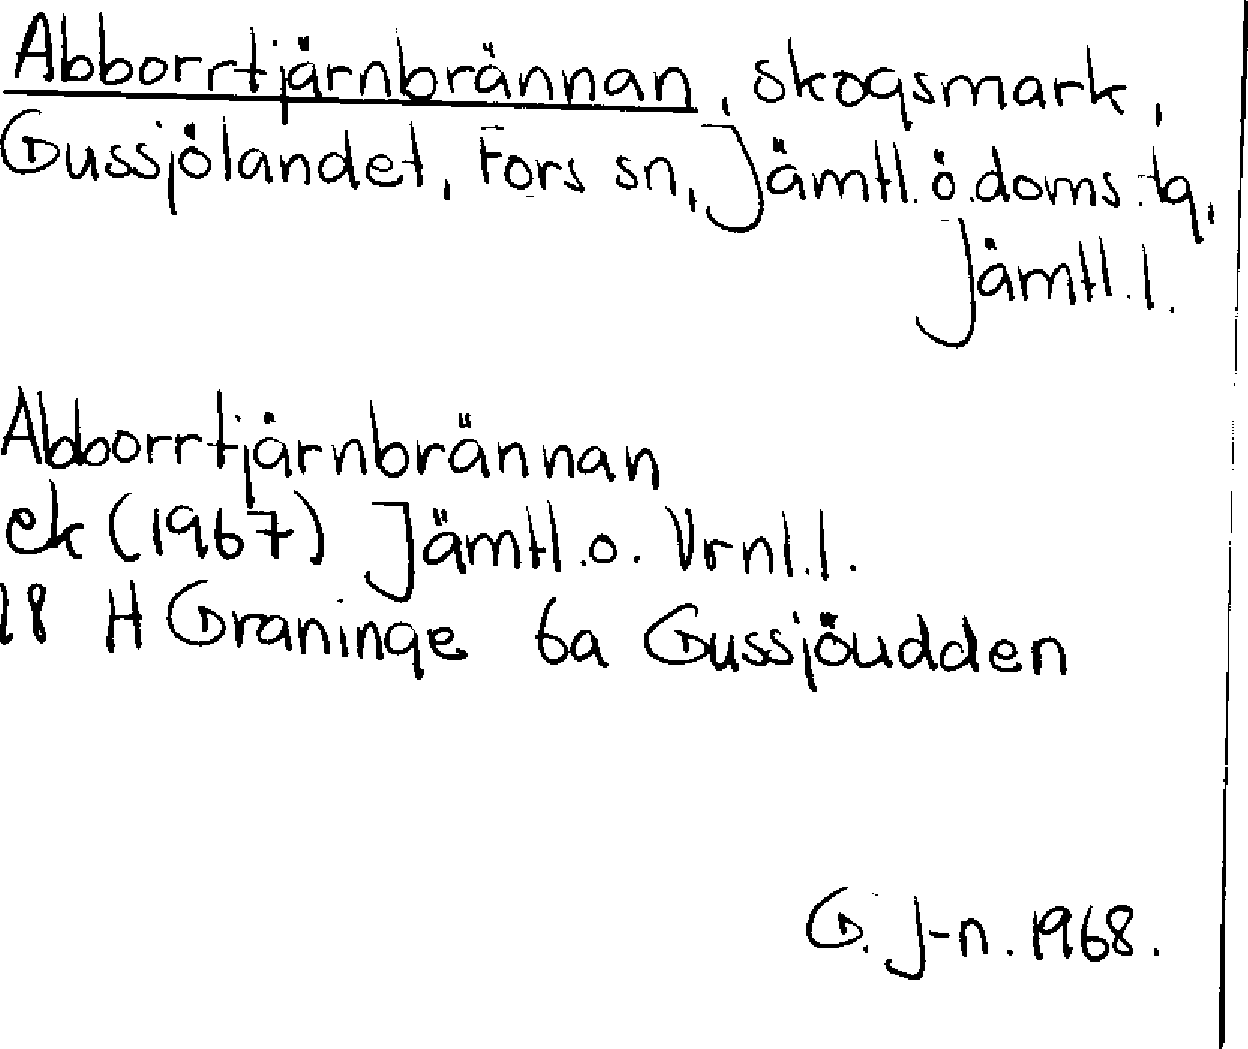 Abborrtjärnbrännan, skogsmark,
Gussjölandet, Fors sn, Jämtl. ö. doms. tg,
Jämtl. l.
Abborrtjärnbrännan
ek (1967) Jämtl. o. Vrnl. l.
18 H Graninge 6a Gussjöudden
G. J-n. 1968.